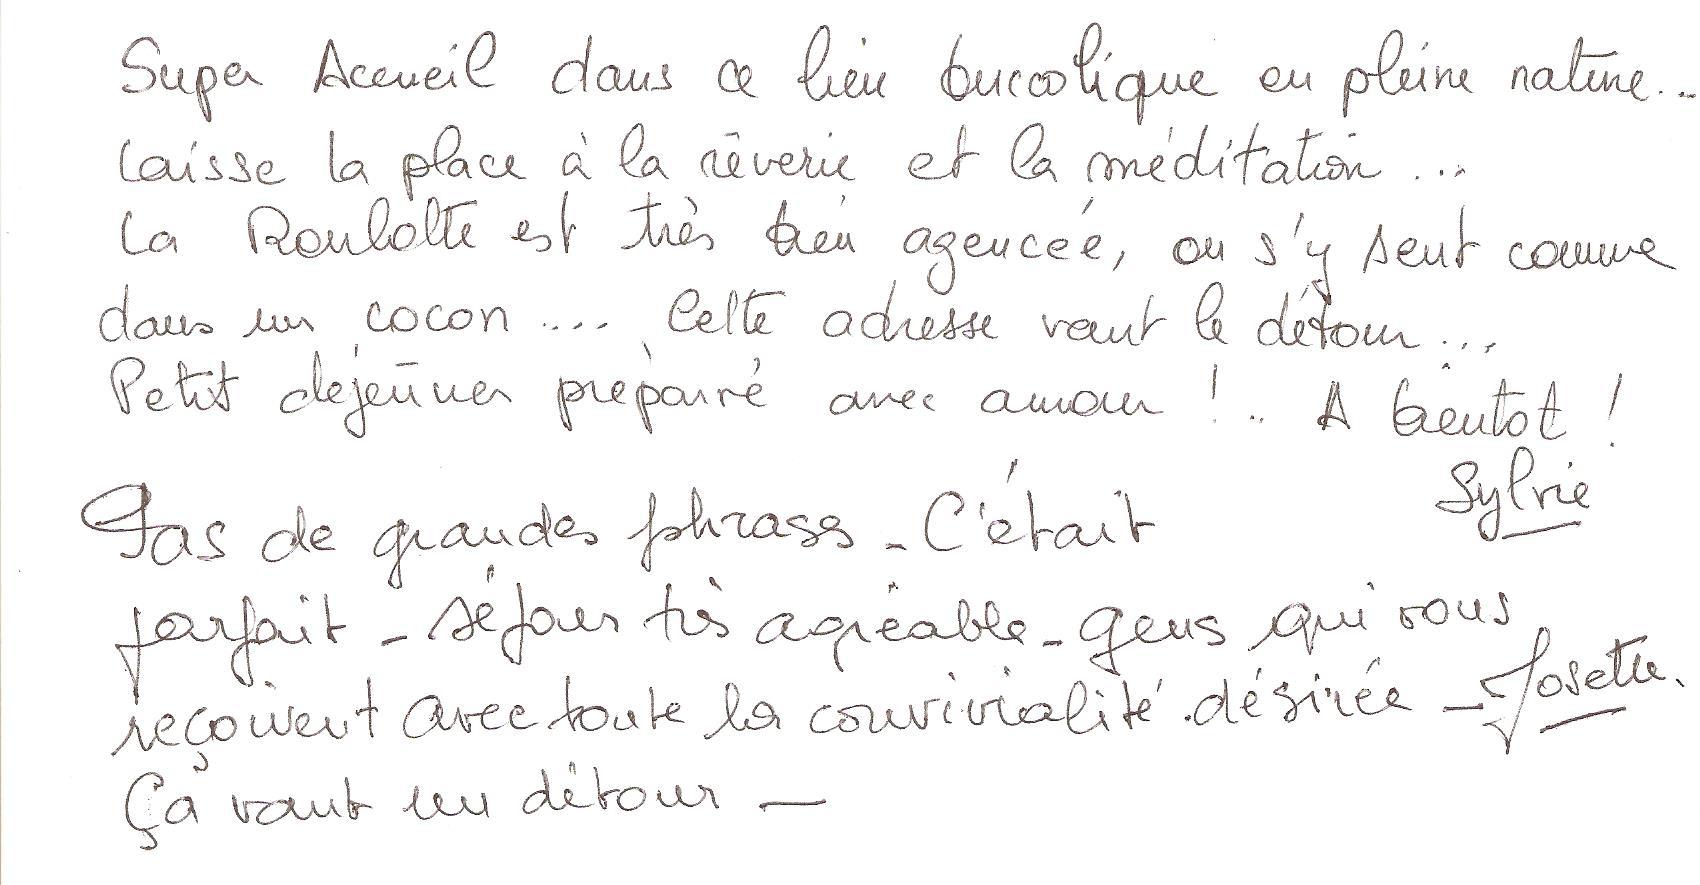 Super Accueil dans ce lieu buccolique en pleine nature...
laisse la place à la rêverie et la méditation...
La Roulotte est très bien agencée, on s'y sent comme
dans un cocon.... Cette adresse vaut le détour...
Petit déjeûner préparré avec amour !.. A bientôt !
Sylvie
Pas de grandes phrases - C'était
parfait - séjour très agréable - gens qui vous
reçoivent avec toute la convivialité désirée - Josette.
Ça vaut un détour -